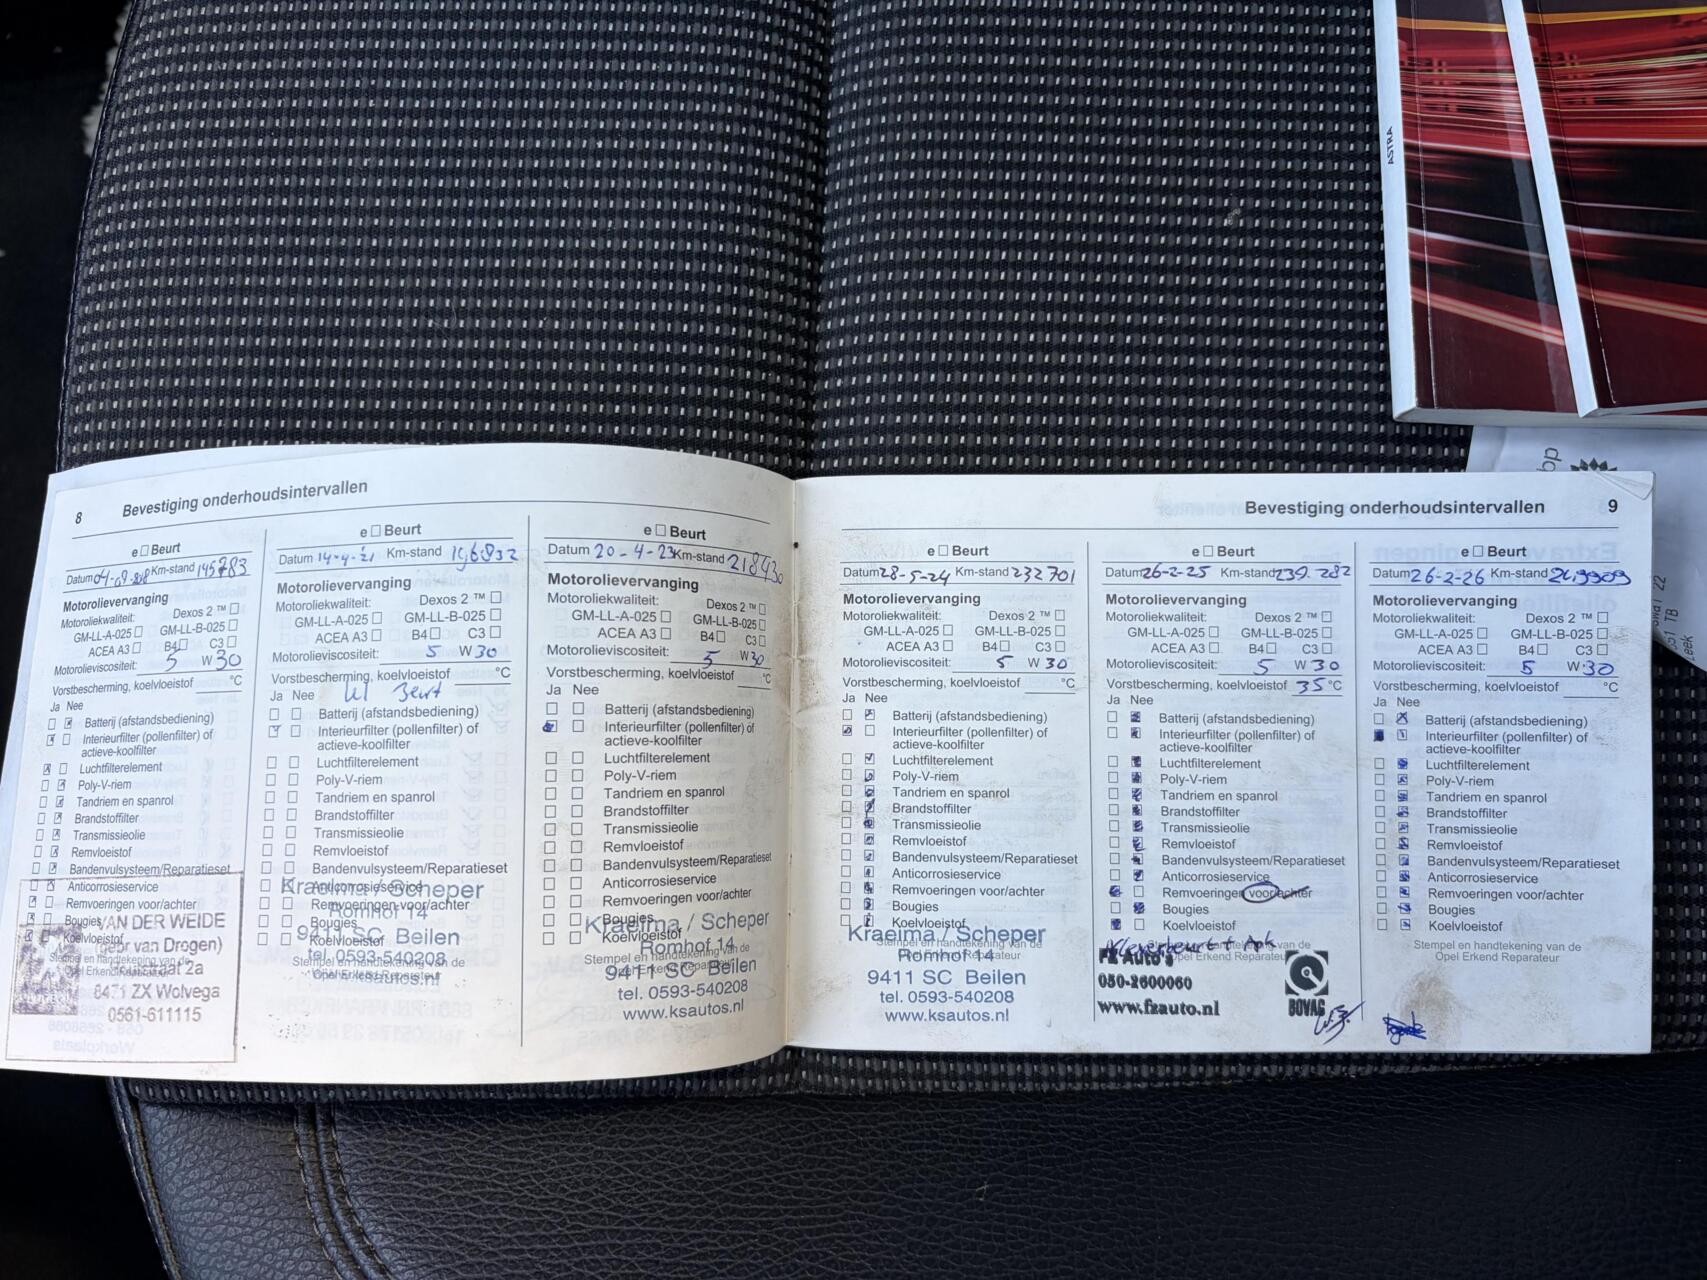 8 Bevestiging onderhoudsintervallen
e □ Beurt
Datum Km-stand 145783
Motorolievervanging
Motoroliekwaliteit: Dexos 2 ™ □
GM-LL-A-025 □ GM-LL-B-025 □
ACEA A3 □ B4 □ C3 □
Motorolieviscositeit: 5 W 30
Vorstbescherming, koelvloeistof °C
Ja Nee
Batterij (afstandsbediening)
Interieurfilter (pollenfilter) of
actieve-koolfilter
Luchtfilterelement
Poly-V-riem
Tandriem en spanrol
Brandstoffilter
Transmissieolie
Remvloeistof
Bandenvulsysteem/Reparatieset
Anticorrosieservice
Remvoeringen voor/achter
Bougies
Koelvloeistof
VAN DER WEIDE
(gebr van Drogen)
8471 ZX Wolvega
0561-611115
e □ Beurt
Datum 14-4-21 Km-stand 196832
Motorolievervanging
Motoroliekwaliteit: Dexos 2 ™ □
GM-LL-A-025 □ GM-LL-B-025 □
ACEA A3 □ B4 □ C3 □
Motorolieviscositeit: 5 W 30
Vorstbescherming, koelvloeistof °C
Ja Nee Beurt
Batterij (afstandsbediening)
Interieurfilter (pollenfilter) of
actieve-koolfilter
Luchtfilterelement
Poly-V-riem
Tandriem en spanrol
Brandstoffilter
Transmissieolie
Remvloeistof
Bandenvulsysteem/Reparatieset
Anticorrosieservice
Remvoeringen voor/achter
Bougies
Koelvloeistof
Stempel en handtekening van de
Opel Erkend Reparateur
Kraelma / Scheper
Romhof 14
9411 SC Beilen
tel. 0593-540208
www.ksautos.nl
e □ Beurt
Datum 20-4-23 Km-stand 218430
Motorolievervanging
Motoroliekwaliteit: Dexos 2 ™ □
GM-LL-A-025 □ GM-LL-B-025 □
ACEA A3 □ B4 □ C3 □
Motorolieviscositeit: 5 W 30
Vorstbescherming, koelvloeistof °C
Ja Nee
Batterij (afstandsbediening)
Interieurfilter (pollenfilter) of
actieve-koolfilter
Luchtfilterelement
Poly-V-riem
Tandriem en spanrol
Brandstoffilter
Transmissieolie
Remvloeistof
Bandenvulsysteem/Reparatieset
Anticorrosieservice
Remvoeringen voor/achter
Bougies
Koelvloeistof
Stempel en handtekening van de
Opel Erkend Reparateur
Kraelma / Scheper
Romhof 14
9411 SC Beilen
tel. 0593-540208
www.ksautos.nl
Bevestiging onderhoudsintervallen 9
e □ Beurt
Datum 28-5-24 Km-stand 232701
Motorolievervanging
Motoroliekwaliteit: Dexos 2 ™ □
GM-LL-A-025 □ GM-LL-B-025 □
ACEA A3 □ B4 □ C3 □
Motorolieviscositeit: 5 W 30
Vorstbescherming, koelvloeistof °C
Ja Nee
Batterij (afstandsbediening)
Interieurfilter (pollenfilter) of
actieve-koolfilter
Luchtfilterelement
Poly-V-riem
Tandriem en spanrol
Brandstoffilter
Transmissieolie
Remvloeistof
Bandenvulsysteem/Reparatieset
Anticorrosieservice
Remvoeringen voor/achter
Bougies
Koelvloeistof
Stempel en handtekening van de
Opel Erkend Reparateur
Kraelma / Scheper
Romhof 14
9411 SC Beilen
tel. 0593-540208
www.ksautos.nl
e □ Beurt
Datum 26-2-25 Km-stand 239.282
Motorolievervanging
Motoroliekwaliteit: Dexos 2 ™ □
GM-LL-A-025 □ GM-LL-B-025 □
ACEA A3 □ B4 □ C3 □
Motorolieviscositeit: 5 W 30
Vorstbescherming, koelvloeistof 35 °C
Ja Nee
Batterij (afstandsbediening)
Interieurfilter (pollenfilter) of
actieve-koolfilter
Luchtfilterelement
Poly-V-riem
Tandriem en spanrol
Brandstoffilter
Transmissieolie
Remvloeistof
Bandenvulsysteem/Reparatieset
Anticorrosieservice
Remvoeringen voor/achter
Bougies
Koelvloeistof
Stempel en handtekening van de
Opel Erkend Reparateur
FZ Auto's
050-2600060
www.fzauto.nl
BOVAG
e □ Beurt
Datum 26-2-26 Km-stand
Motorolievervanging
Motoroliekwaliteit: Dexos 2 ™ □
GM-LL-A-025 □ GM-LL-B-025 □
ACEA A3 □ B4 □ C3 □
Motorolieviscositeit: 5 W 30
Vorstbescherming, koelvloeistof °C
Ja Nee
Batterij (afstandsbediening)
Interieurfilter (pollenfilter) of
actieve-koolfilter
Luchtfilterelement
Poly-V-riem
Tandriem en spanrol
Brandstoffilter
Transmissieolie
Remvloeistof
Bandenvulsysteem/Reparatieset
Anticorrosieservice
Remvoeringen voor/achter
Bougies
Koelvloeistof
Stempel en handtekening van de
Opel Erkend Reparateur
ASTRA
bp